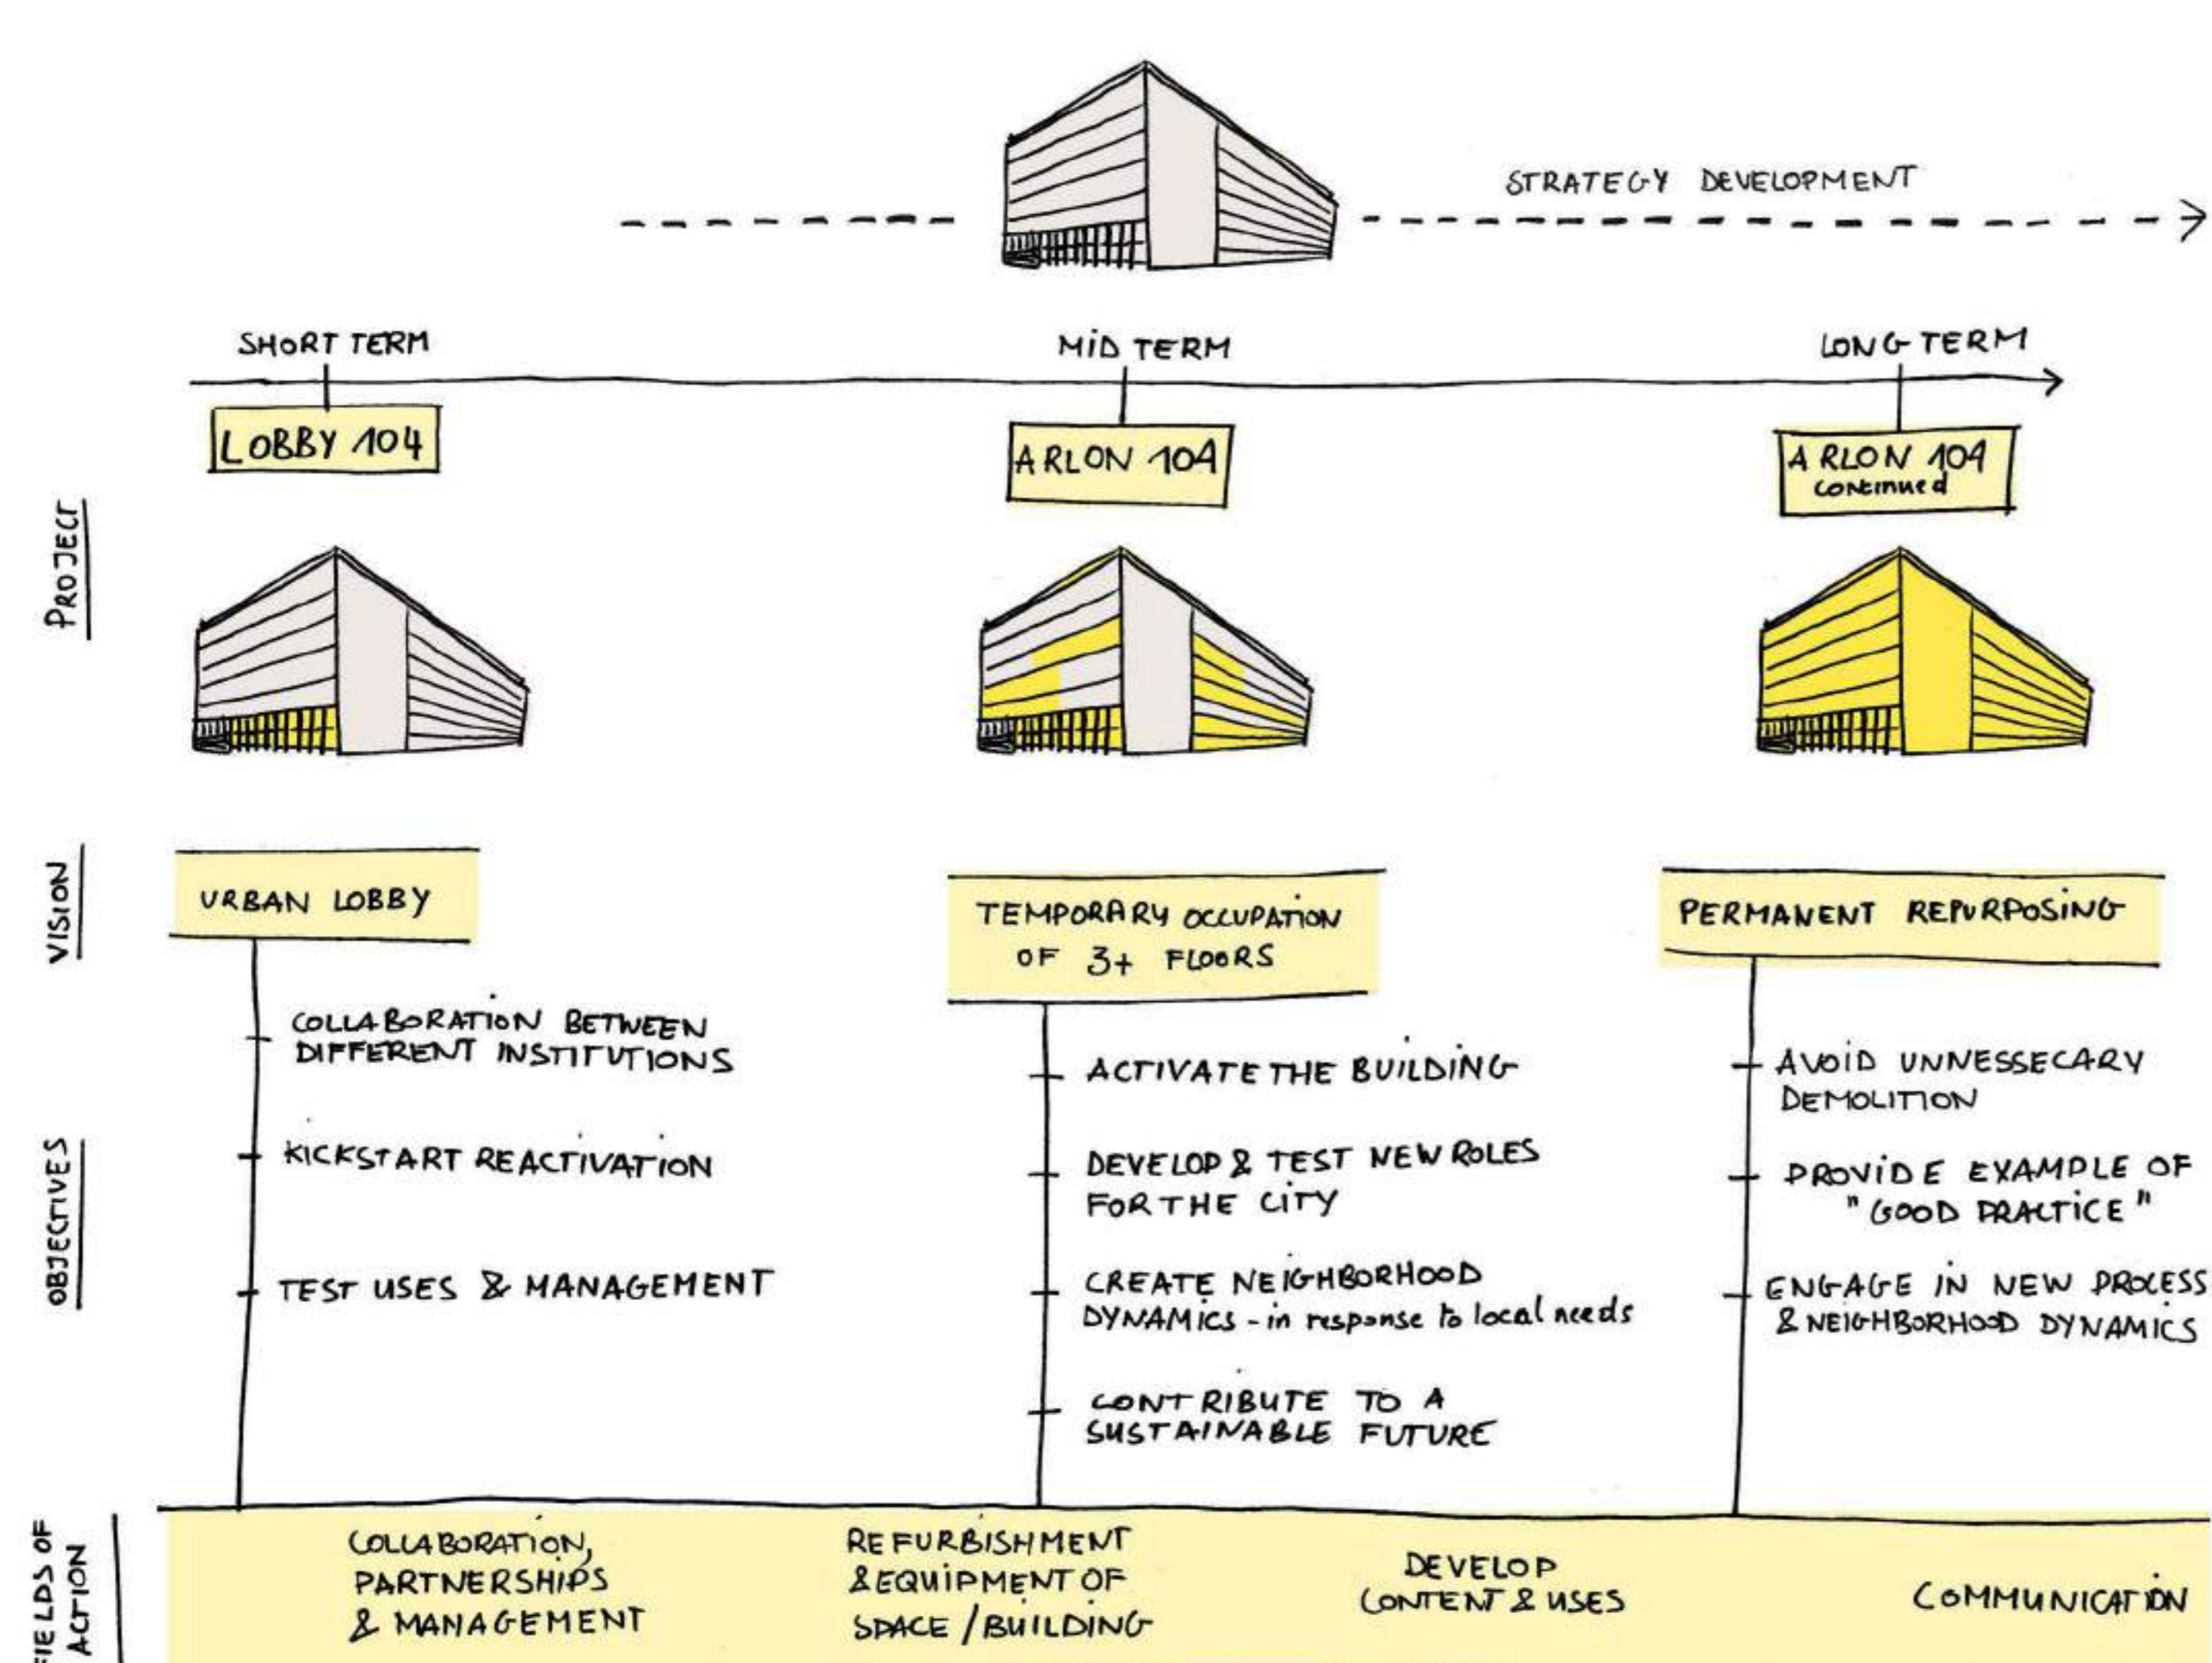 STRATEGY DEVELOPMENT
SHORT TERM
MID TERM
LONG TERM
LOBBY 104
ARLON 104
ARLON 104
continued
PROJECT
VISION
URBAN LOBBY
TEMPORARY OCCUPATION
OF 3+ FLOORS
PERMANENT REPURPOSING
OBJECTIVES
COLLABORATION BETWEEN
DIFFERENT INSTITUTIONS
KICKSTART REACTIVATION
TEST USES & MANAGEMENT
ACTIVATE THE BUILDING
DEVELOP & TEST NEW ROLES
FOR THE CITY
CREATE NEIGHBORHOOD
DYNAMICS - in response to local needs
CONTRIBUTE TO A
SUSTAINABLE FUTURE
AVOID UNNESSECARY
DEMOLITION
PROVIDE EXAMPLE OF
"GOOD PRACTICE"
ENGAGE IN NEW PROCESS
& NEIGHBORHOOD DYNAMICS
FIELDS OF
ACTION
COLLABORATION,
PARTNERSHIPS
& MANAGEMENT
REFURBISHMENT
& EQUIPMENT OF
SPACE / BUILDING
DEVELOP
CONTENT & USES
COMMUNICATION